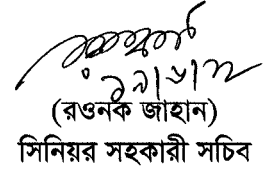 (রওনক জাহান)
সিনিয়র সহকারী সচিব